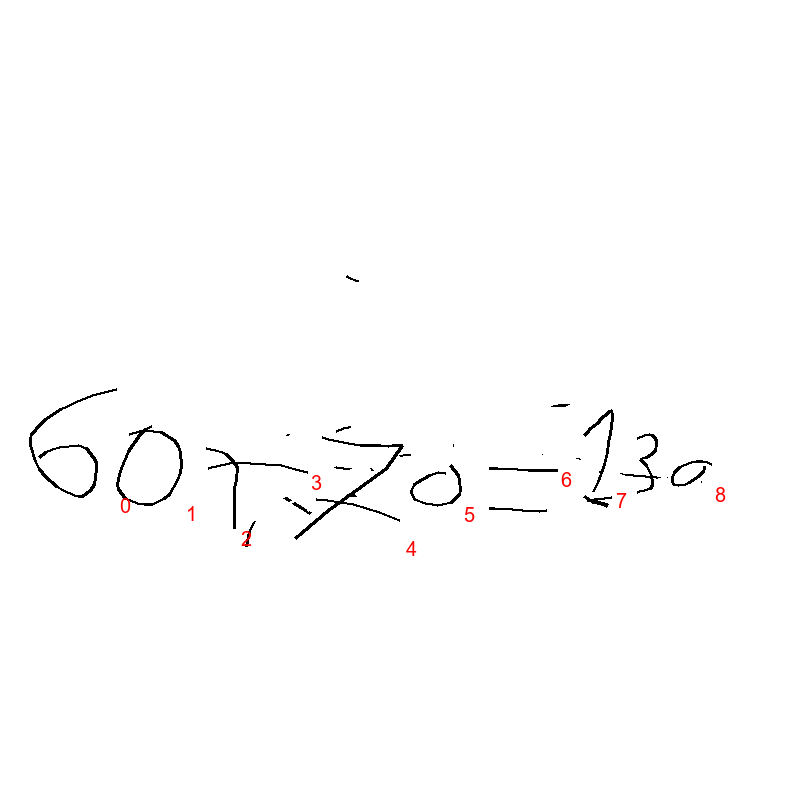 60+70=130
0 1 2 3 4 5 6 7 8